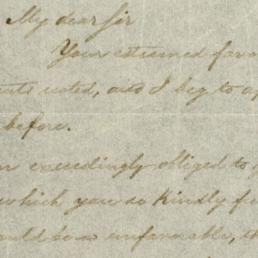 My dear Sir
Your esteemed favo
noted, and I beg to a
before.
exceedingly obliged to y
which you so kindly fu
so unfavorable, th